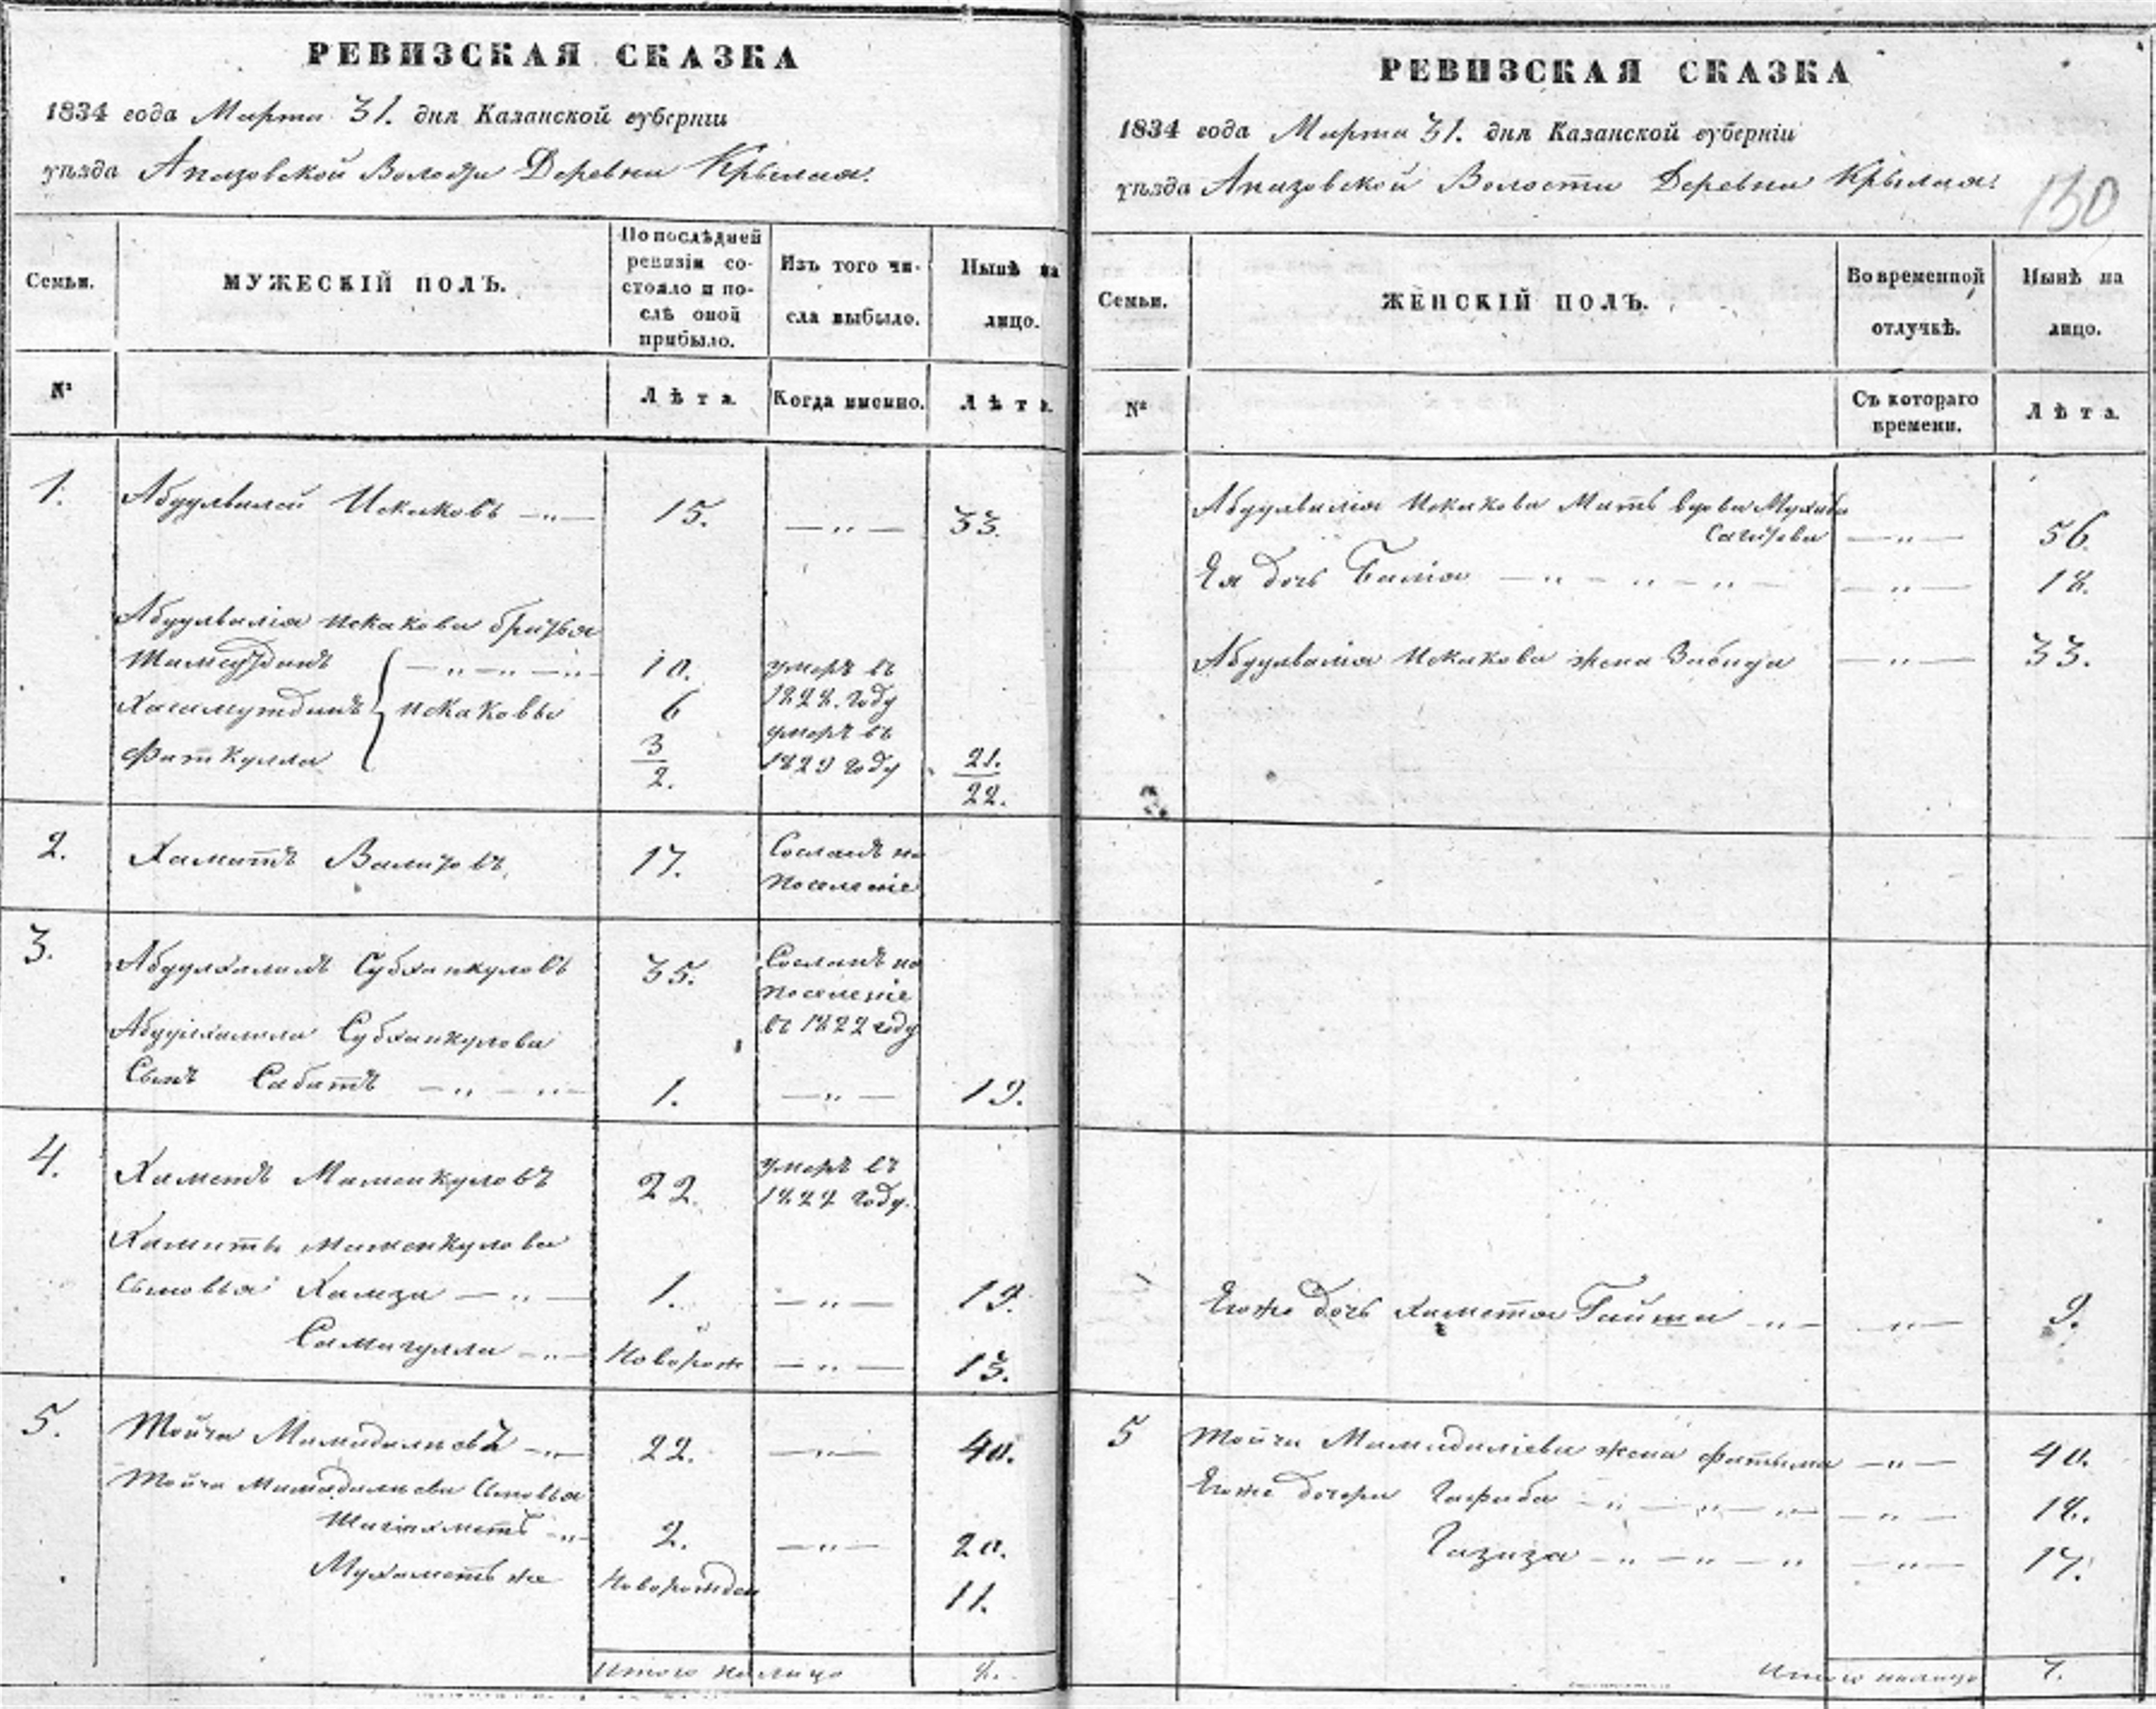 РЕВИЗСКАЯ СКАЗКА
1834 года Марта 31. дня Казанской губернiи
уѣзда Апазовской Волости Деревни Крылая.
Семьи.
МУЖЕСКIЙ ПОЛЪ.
По послѣдней ревизiи состояло и послѣ оной прибыло.
Изъ того числа выбыло.
Нынѣ на лицо.
№
Лѣта.
Когда именно.
Лѣта.
1. Абдулвалей Искаковъ 15. 33.
Абдулвалiя Искакова братья
Шамсутдинъ 10. умеръ въ 1828. году
Хисамутдинъ Искаковы 6 умеръ въ 1829 году
Фаткулла 3/2. 21./22.
2. Хамитъ Валитовъ 17. Сосланъ на поселенiе
3. Абдулхалилъ Субханкуловъ 35. Сосланъ на поселенiе въ 1822 году
Абдулхалила Субханкулова
Сынъ Сабитъ 1. 19.
4. Хаметъ Маменкуловъ 22. умеръ въ 1827 году.
Хамита Маменкулова
Сыновья Хамза 1. 19.
Самигулла Новорож 13.
5. Мойча Мамадалиевъ 22. 40.
Мойча Мамадалиева Сыновья
Шагiахметъ 2. 20.
Мухаметъ же Новорожден 11.
Итого на лицо 8.
РЕВИЗСКАЯ СКАЗКА
1834 года Марта 31. дня Казанской губернiи
уѣзда Апазовской Волости Деревни Крылая.
130
Семьи.
ЖЕНСКIЙ ПОЛЪ.
Во временной отлучкѣ.
Нынѣ на лицо.
№
Съ котораго времени.
Лѣта.
Абдулвалiя Искакова Мать вдова
Сагитова 56.
Ея дочь Бамiя 18.
Абдулвалiя Искакова жена Забида 33.
Егоже дочь Хамета Гайша 9.
5 Мойчи Мамадалiева жена Фатыма 40.
Егоже дочери Гафиба 18.
Газиза 17.
Итого налицо 7.